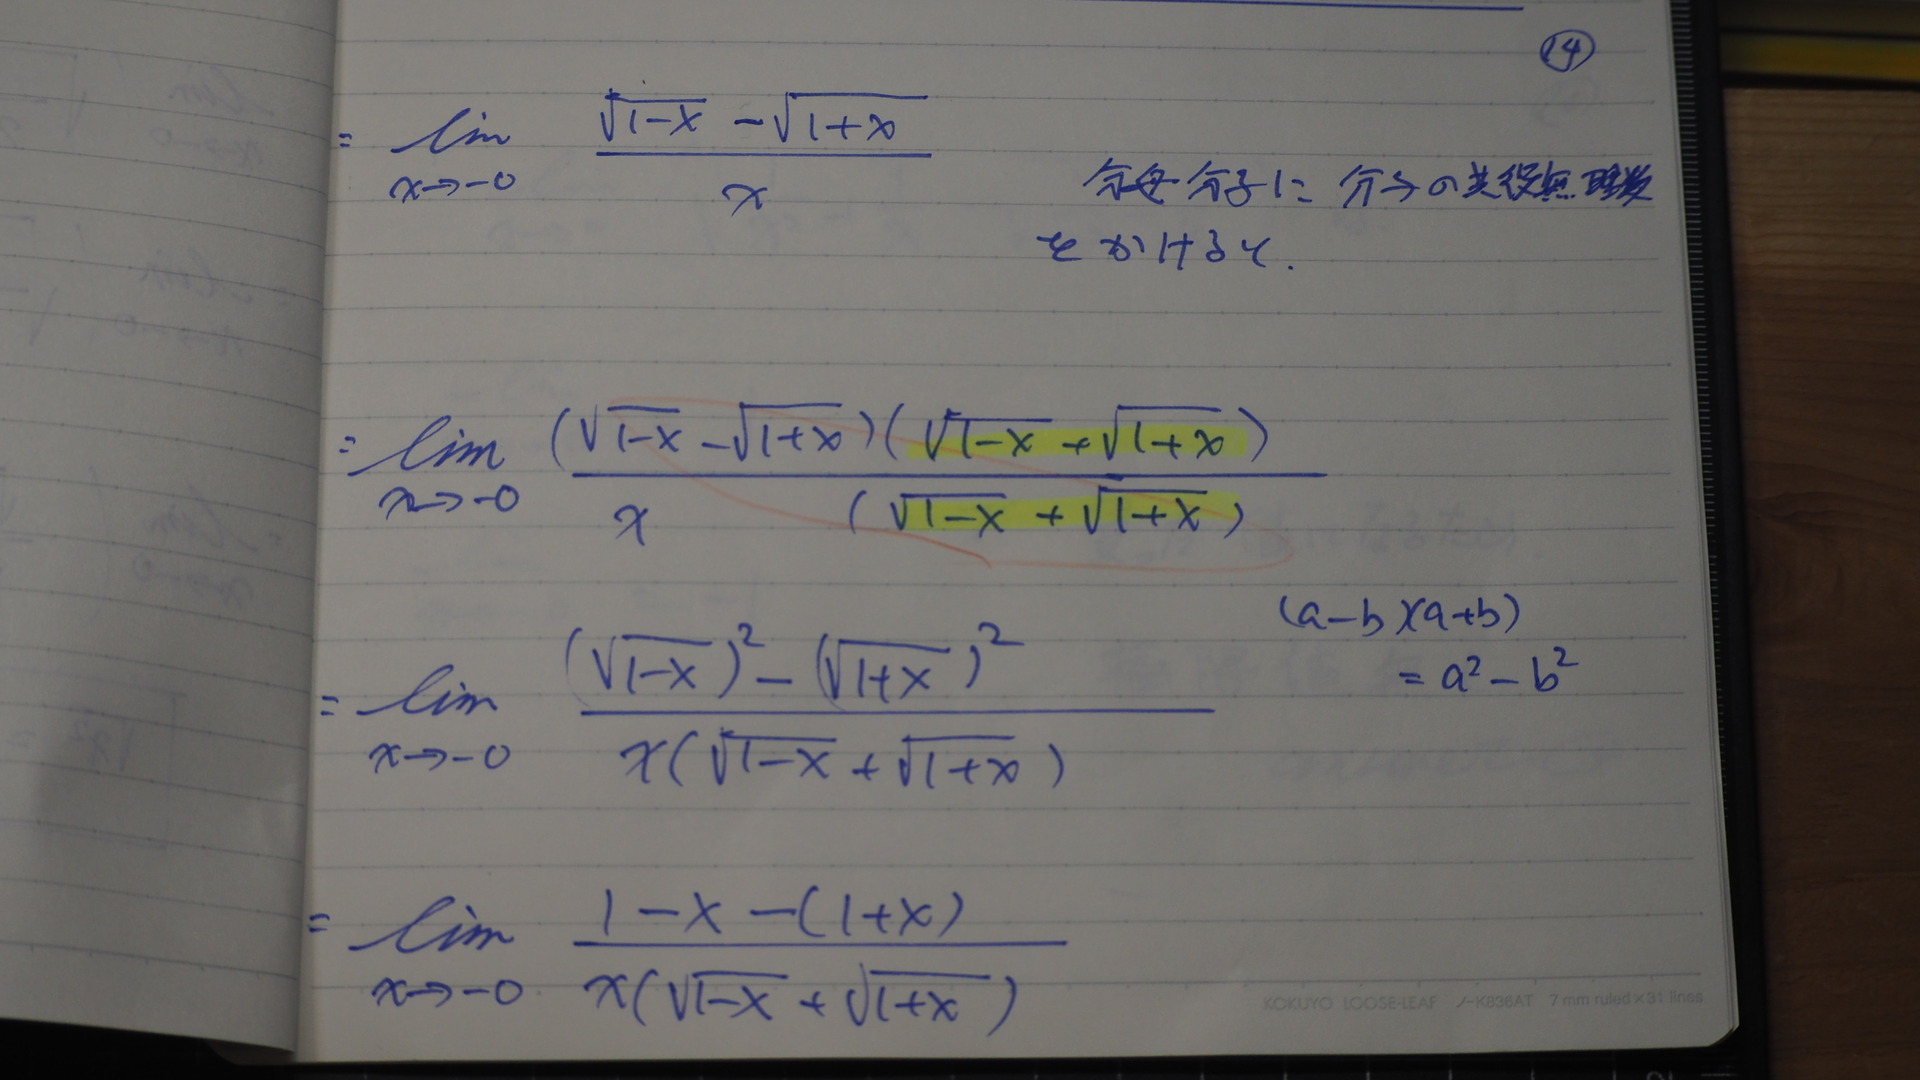 ⑭
= lim x→-0 (√(1-x) - √(1+x)) / x
分母分子に 分子の共役無理数
をかけると.
= lim x→-0 (√(1-x) - √(1+x))(√(1-x) + √(1+x)) / x (√(1-x) + √(1+x))
(a-b)(a+b)
= a² - b²
= lim x→-0 ((√(1-x))² - (√(1+x))²) / x(√(1-x) + √(1+x))
= lim x→-0 (1-x-(1+x)) / x(√(1-x) + √(1+x))
KOKUYO LOOSE-LEAF ノ-K836AT 7 mm ruled×31 lines